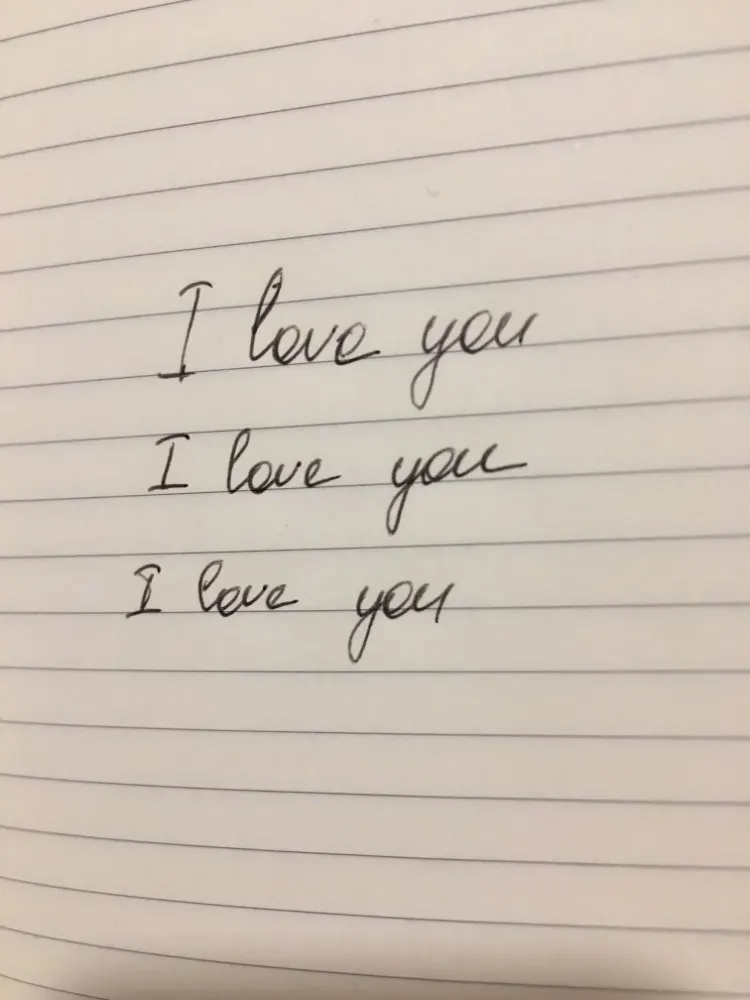 I love you
I love you
I love you